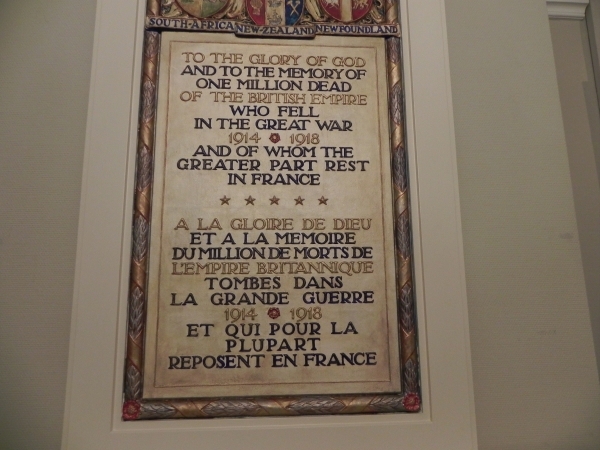 SOUTH·AFRICA NEW·ZEALAND NEWFOUNDLAND
TO THE GLORY OF GOD
AND TO THE MEMORY OF
ONE MILLION DEAD
OF THE BRITISH EMPIRE
WHO FELL
IN THE GREAT WAR
1914 1918
AND OF WHOM THE
GREATER PART REST
IN FRANCE
A LA GLOIRE DE DIEU
ET A LA MEMOIRE
DU MILLION DE MORTS DE
L'EMPIRE BRITANNIQUE
TOMBES DANS
LA GRANDE GUERRE
1914 1918
ET QUI POUR LA
PLUPART
REPOSENT EN FRANCE